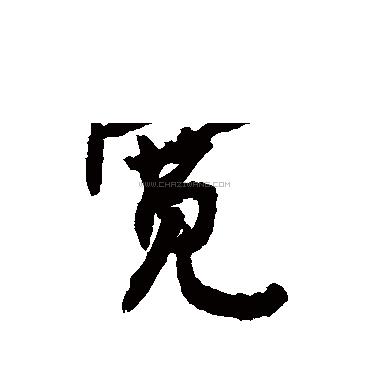 宽
WWW.CHAZIWANG.COM